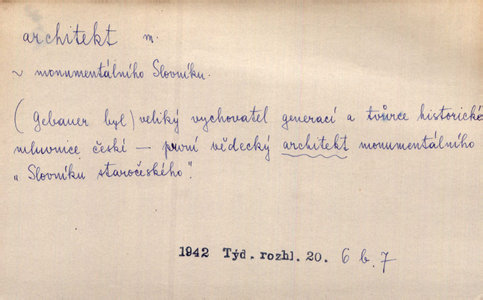 architekt m.
~ monumentálního Slovníku.
(Gebauer byl) veliký vychovatel generací a tvůrce historické
mluvnice české — první vědecký architekt monumentálního
„Slovníku staročeského".
1942 Týd. rozhl. 20. 6 b. 7